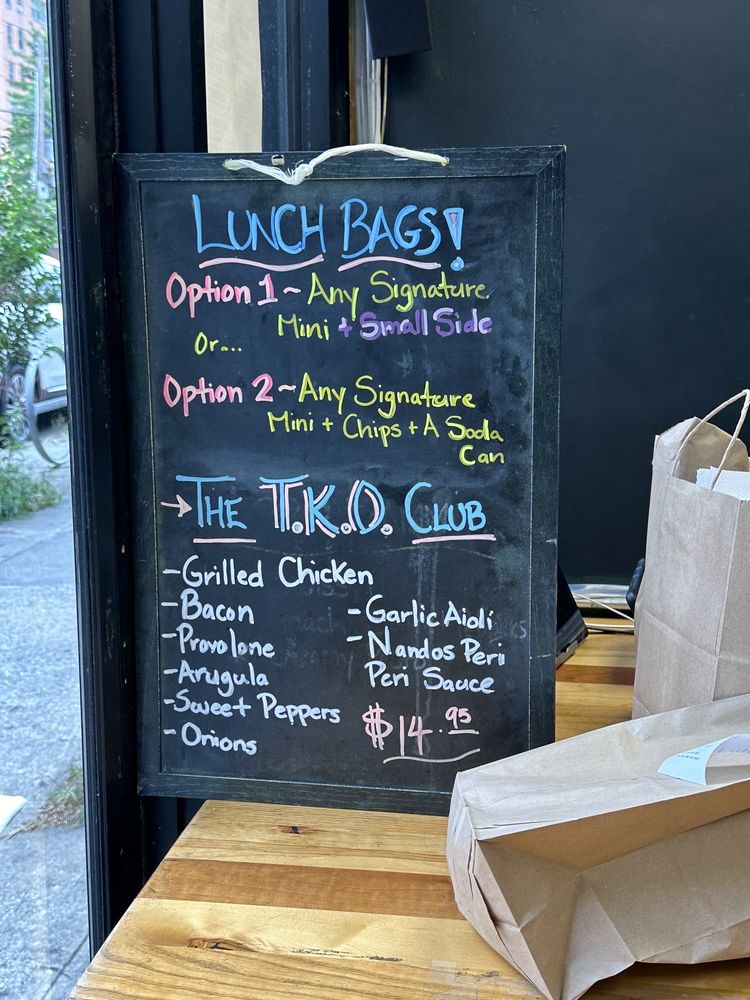 LUNCH BAGS!
Option 1 ~ Any Signature
Mini + Small Side
Or...
Option 2 ~ Any Signature
Mini + Chips + A Soda
Can
→ THE T.K.O. CLUB
- Grilled Chicken
- Bacon
- Provolone
- Arugula
- Sweet Peppers
- Onions
- Garlic Aioli
- Nandos Peri
Peri Sauce
$14.95